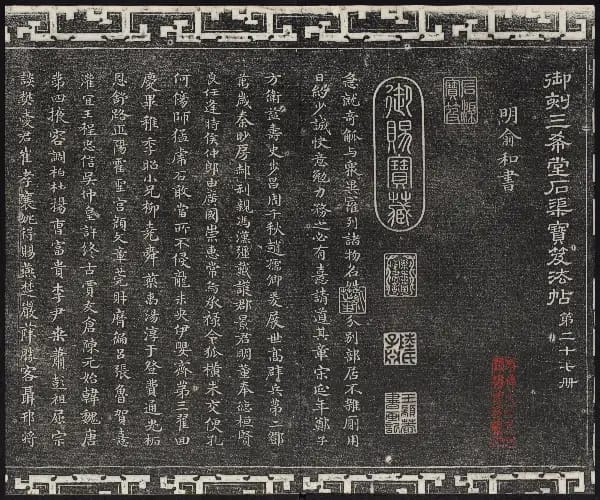 御刻三希堂石渠寶笈法帖 第二十七册
明俞和書
石渠寶笈
御賜寶藏
急就奇觚與衆異羅列諸物名姓分別部居不雜廁用
日約少誠快意勉力務之必有憙請道其章宗延年鄭子
方衛益壽史步昌周千秋趙孺卿爰展世高辟兵第二鄧
萬歲秦妙房郝利親馮漢彊戴護郡景君明董奉德桓賢
良任逢時侯仲郎由廣國榮惠常烏承祿令狐橫朱交便孔
何傷師猛虎石敢當所不侵龍未央伊嬰齊第三翟回
慶畢稚季昭小兄柳堯舜藥禹湯淳于登費通光柘
恩舒路正陽霍聖宮顏文章莞財歷徧呂張魯賀憙
灌宜王程忠信吳仲皇許終古賈友倉陳元始韓魏唐
第四掖容調柏杜楊曹富貴李尹桑蕭彭祖屈宗
談樊愛君崔孝襄姚得賜燕楚嚴薛勝客聶邗將